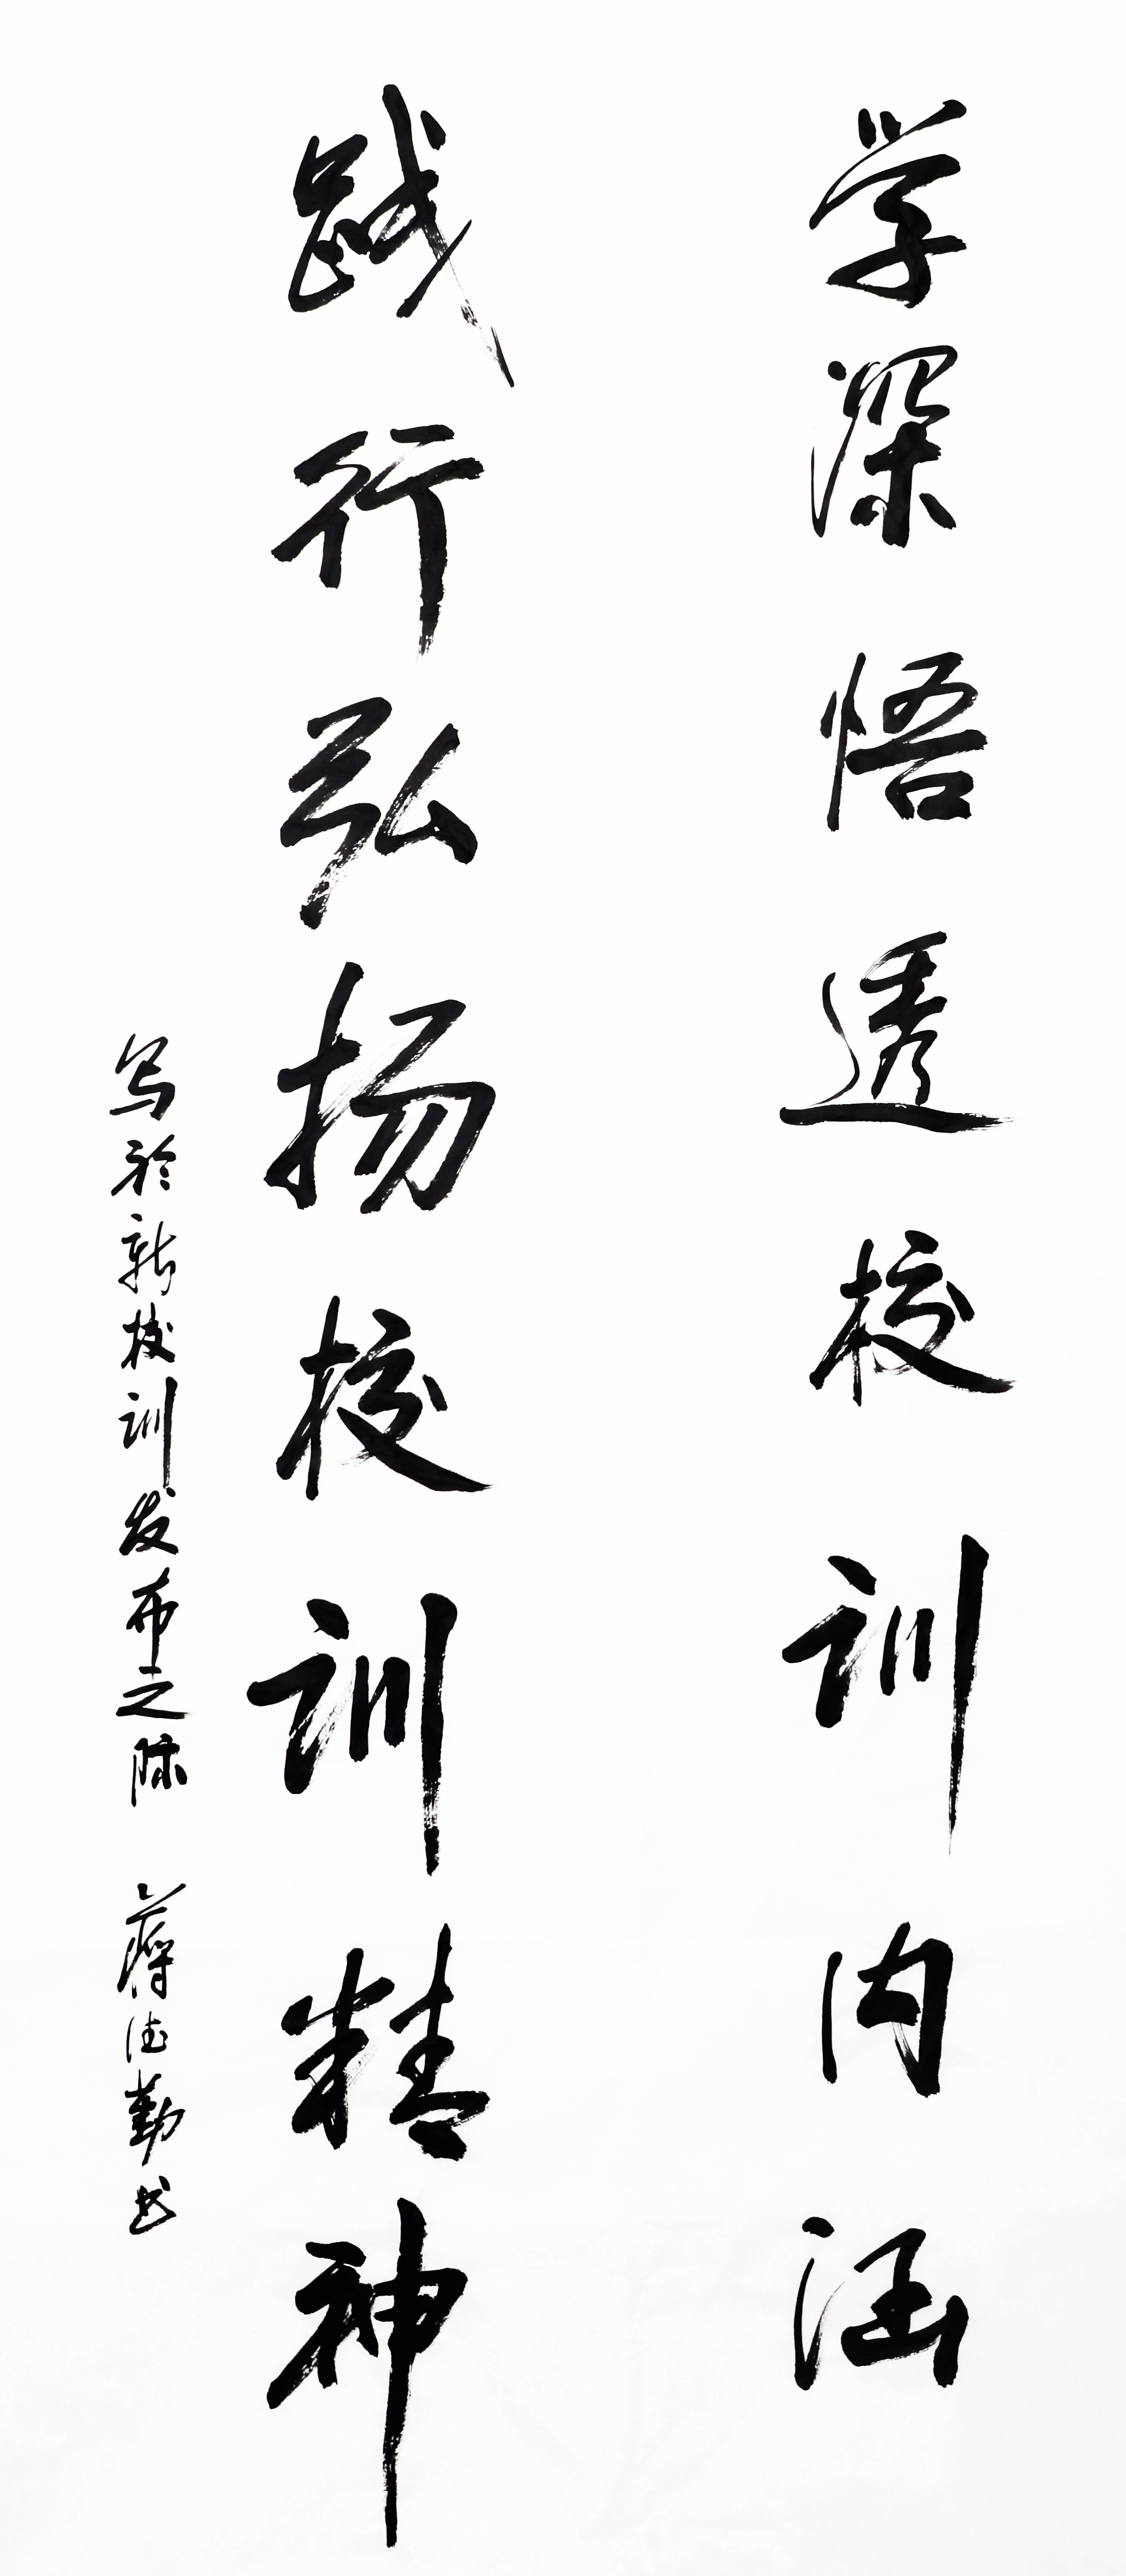 学深悟透校训内涵
践行弘扬校训精神
写於新校训发布之际 蒋德勤书